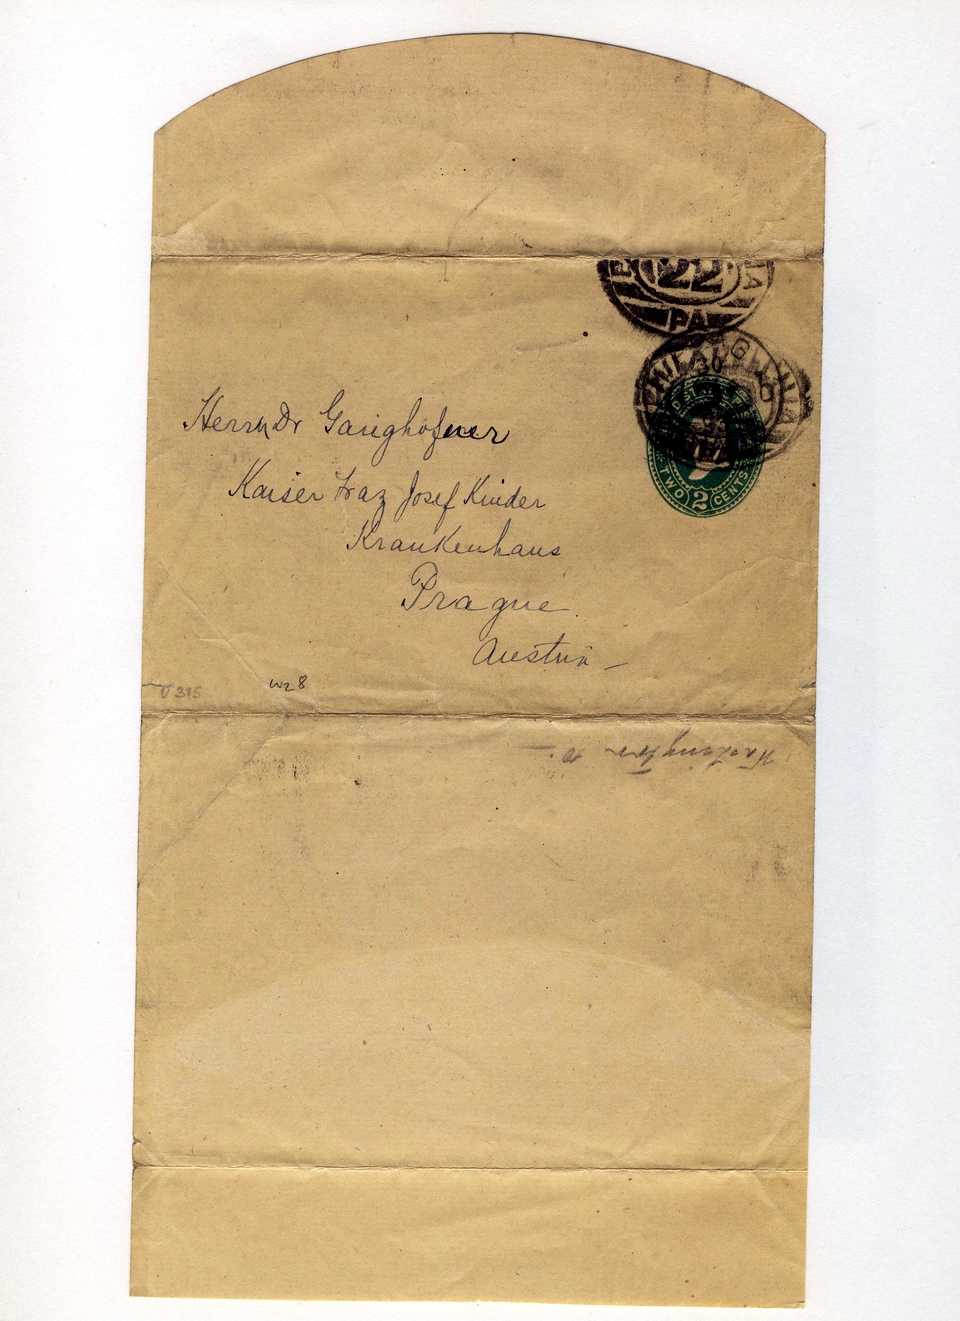 22
PA
PHILADELPHIA
30
TWO 2 CENTS
Herrn Dr Ganghofner
Kaiser Fraz Josef Kinder
Krankenhaus
Prague
Austria
U 315
W28